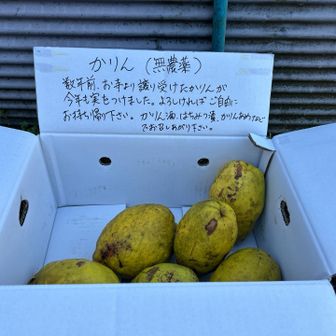 かりん（無農薬）
数年前、お寺より譲り受けたかりんが
今年も実をつけました。よろしければご自由に
お持ち帰り下さい。かりん酒、はちみつ漬、かりんあめなど
でお召しあがり下さい。